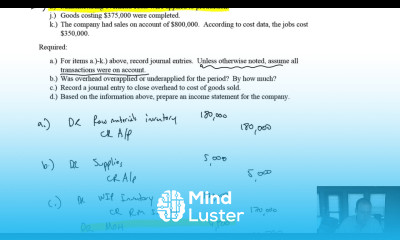 j.) Goods costing $375,000 were completed.
k.) The company had sales on account of $800,000. According to cost data, the jobs cost
$350,000.
Required:
a.) For items a.)-k.) above, record journal entries. Unless otherwise noted, assume all
transactions were on account.
b.) Was overhead overapplied or underapplied for the period? By how much?
c.) Record a journal entry to close overhead to cost of goods sold.
d.) Based on the information above, prepare an income statement for the company.
a.) DR Raw materials inventory 180,000
CR A/P 180,000
b.) DR Supplies 5,000
CR A/P 5,000
(c.) DR WIP Inventory
CR RM 170,000
DR MOH
Mind
Luster